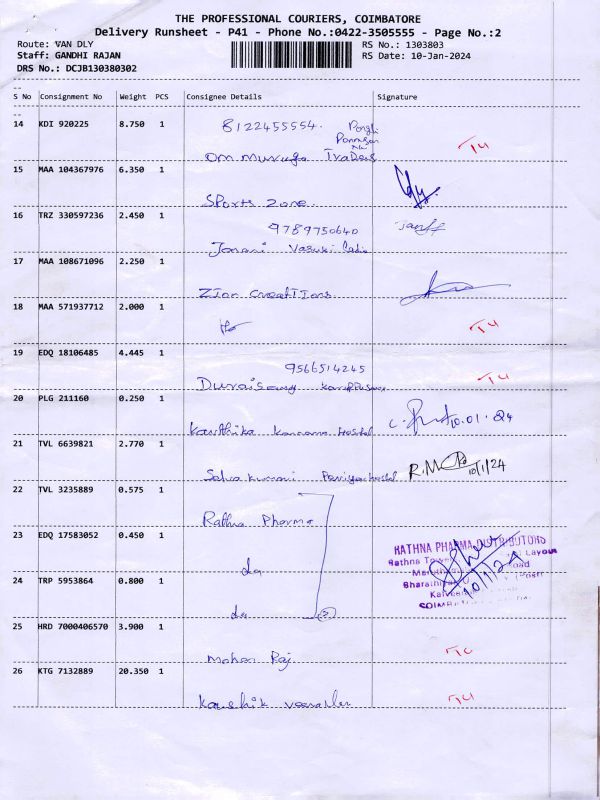 THE PROFESSIONAL COURIERS, COIMBATORE
Delivery Runsheet - P41 - Phone No.:0422-3505555 - Page No.:2
Route: VAN DLY
RS No.: 1303803
Staff: GANDHI RAJAN
RS Date: 10-Jan-2024
DRS No.: DCJB130380302
S No Consignment No Weight PCS Consignee Details Signature
14 KDI 920225 8.750 1 8122455554.
Om muruga Traders
15 MAA 104367976 6.350 1
Sports Zone.
16 TRZ 330597236 2.450 1 9789750640
Janani Vasuki
17 MAA 108671096 2.250 1
Zion Creations
18 MAA 571937712 2.000 1
19 EDQ 18106485 4.445 1 9566514245
Duraisamy
20 PLG 211160 0.250 1 10.01.24
Karthika Kannama Hostel
21 TVL 6639821 2.770 1 R.M 10/1/24
Selvakumari Periyar hostel
22 TVL 3235889 0.575 1
Rathna Pharma
23 EDQ 17583052 0.450 1
do
RATHNA PHARMA DISTRIBUTORS
Rathna Layout
Road
10/1/24
24 TRP 5953864 0.800 1
do
25 HRD 7000406570 3.900 1
Mohan Raj
26 KTG 7132889 20.350 1
Kaushik